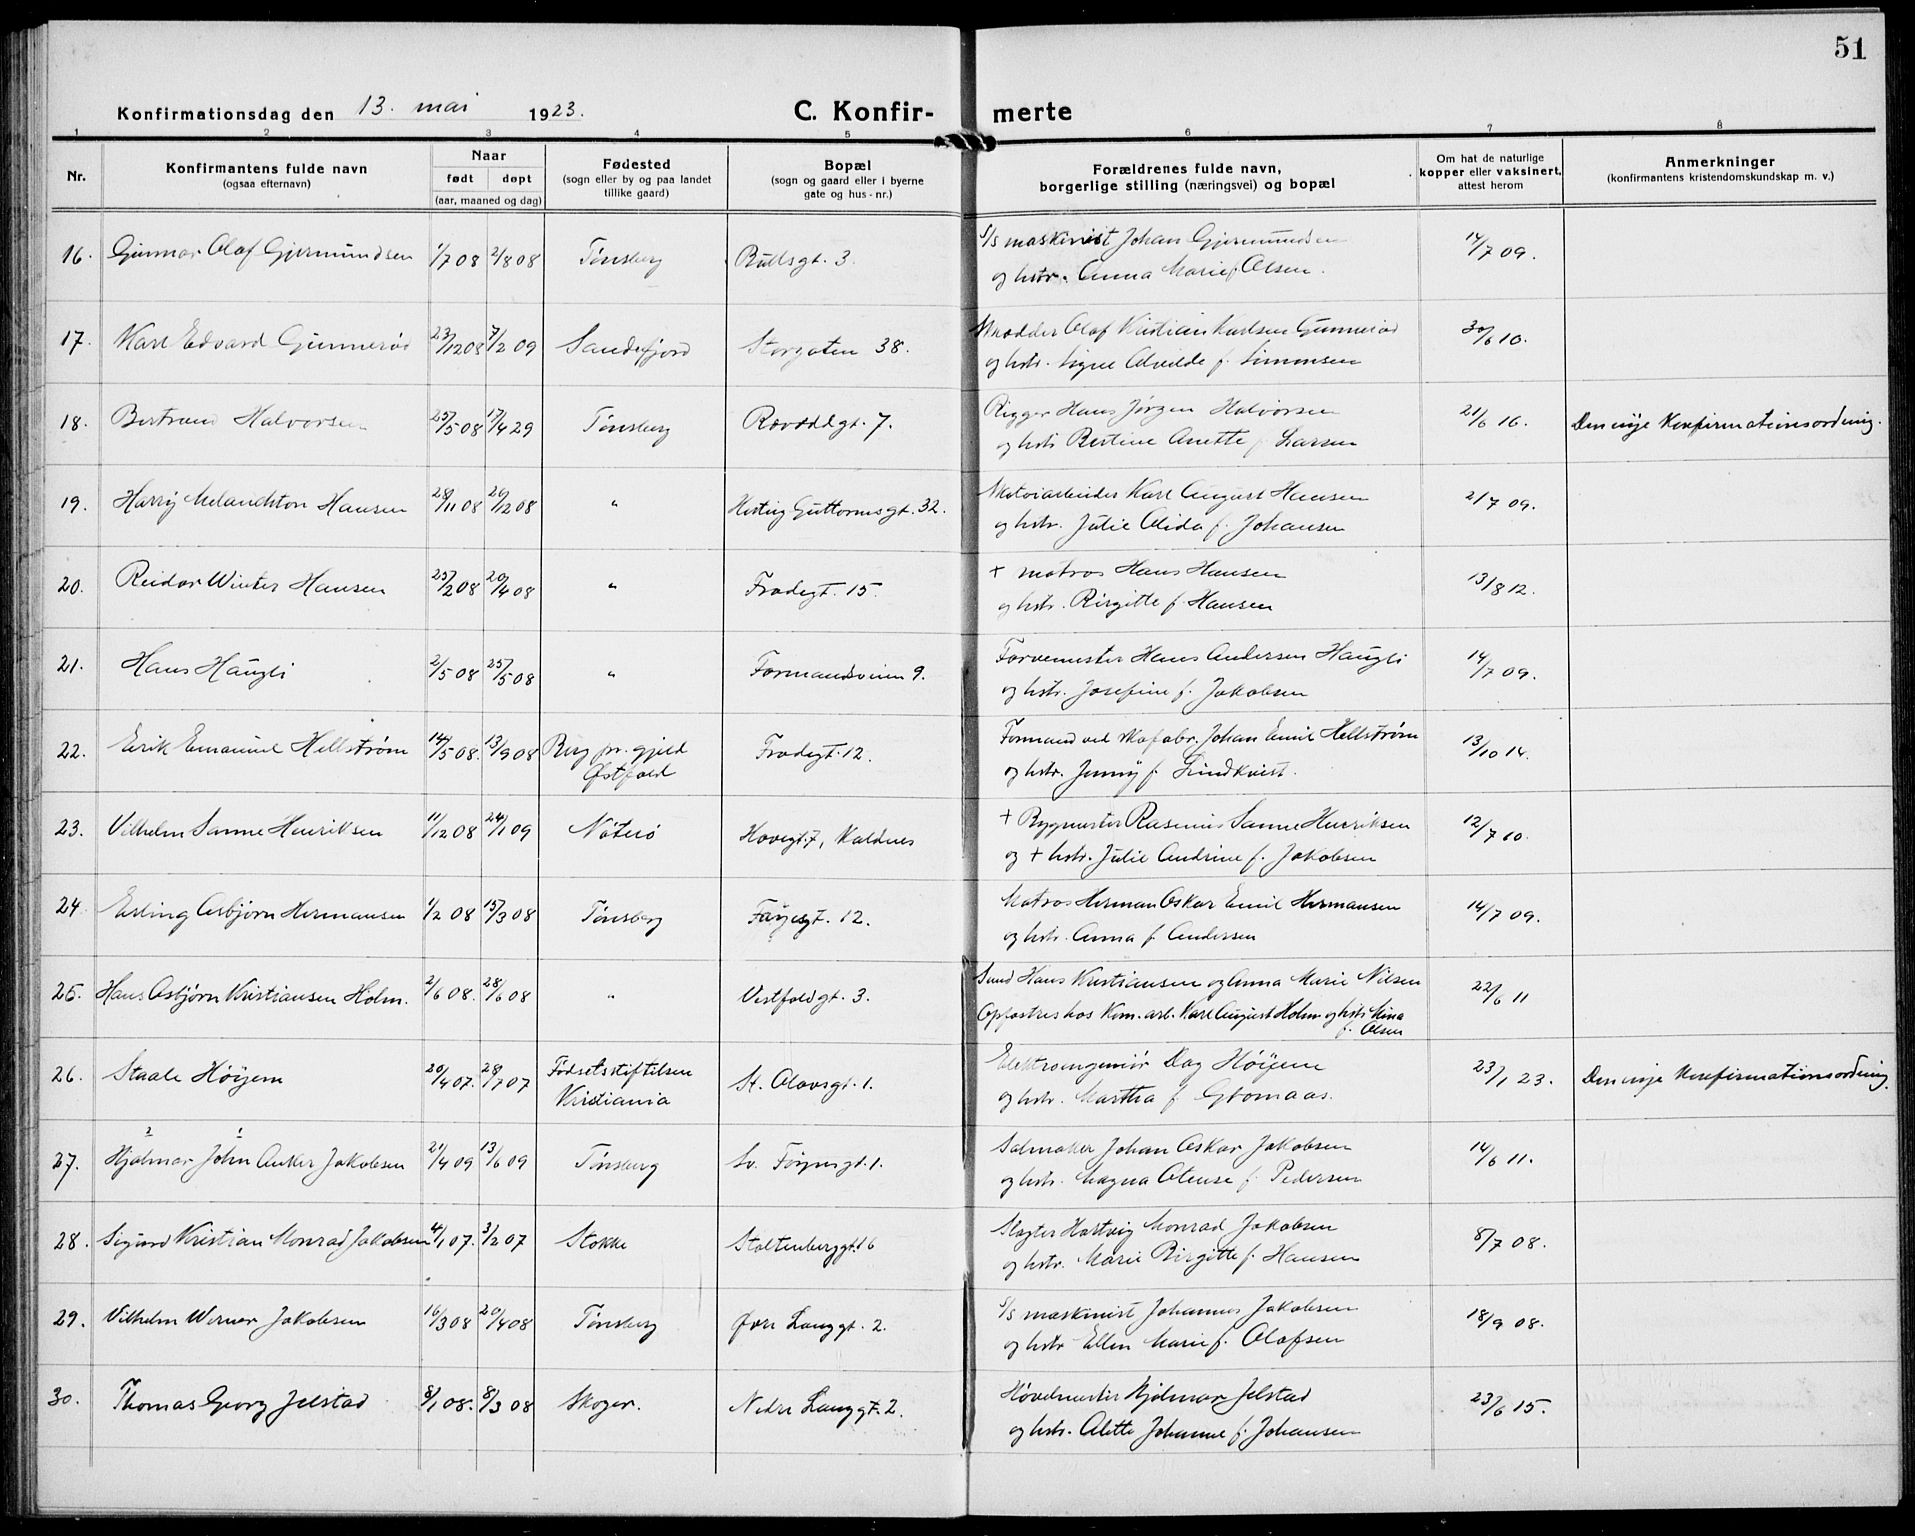 51
Konfirmationsdag den 13. mai 1923.
C. Konfir- merte
1 2 3 4 5 6 7 8
Nr.
Konfirmantens fulde navn
(ogsaa efternavn)
Naar
født døpt
(aar, maaned og dag)
Fødested
(sogn eller by og paa landet
tillike gaard)
Bopæl
(sogn og gaard eller i byerne
gate og hus-nr.)
Forældrenes fulde navn,
borgerlige stilling (næringsvei) og bopæl
Om hat de naturlige
kopper eller vaksinert,
attest herom
Anmerkninger
(konfirmantens kristendomskundskap m. v.)
16. Gunnar Olaf Gjermundsen 1/7 08 2/8 08 Tønsberg Bullsgt. 3. S/s maskinist Johan Gjermundsen 14/7 09.
og hstr. Anna Marie f. Olsen.
17. Karl Edvard Gunnerød 23/12 08 7/2 09 Sandefjord Storgaten 38. Skrædder Olaf Kristian Karlsen Gunnerød 30/6 10.
og hstr. Signe Alvilde f. Simonsen
18. Bertrand Halvorsen 25/5 08 17/4 29 Tønsberg Røvoldgt. 7. Rigger Hans Jørgen Halvorsen 21/6 16. Den nye Konfirmationsordning.
og hstr. Bertine Anette f. Larsen
19. Harry Melanchton Hansen 28/11 08 26/12 08 " Hertug Guttormsgt. 32. Motorarbeider Karl August Hansen 2/7 09.
og hstr. Julie Alida f. Johansen
20. Reidar Winter Hansen 25/2 08 20/4 08 " Frodegt. 15. + matros Hans Hansen 13/8 12.
og hstr. Birgitte f. Hansen
21. Hans Haugli 2/5 08 25/5 08 " Formandsveien 9. Farvemester Hans Andersen Haugli 14/7 09.
og hstr. Josefine f. Jakobsen
22. Erik Emanuel Hellstrøm 14/5 08. 13/9 08 Berg pr. gjeld Frodegt. 12. Formand ved skofabr. Johan Emil Hellstrøm 13/10 14.
Østfold og hstr. Jenny f. Lindkvist.
23. Vilhelm Sanne Henriksen 11/12 08 24/1 09 Nøterø Hovegt. 7, Kaldnes + Bygmester Rasmus Sanne Henriksen 12/7 10.
og + hstr. Julie Andrine f. Jakobsen
24. Erling Asbjørn Hermansen 1/2 08 15/3 08 Tønsberg Farjesgt. 12. Matros Herman Oskar Emil Hermansen 14/7 09.
og hstr. Anna f. Andersen
25. Hans Asbjørn Kristiansen Holm. 2/6 08. 28/6 08 " Vestfoldgt. 3. Smed Hans Kristiansen og Anna Marie Nilsen 22/6 11
Opfostres hos Kom. arb. Karl August Holm og hstr. Mina
f. Olsen
26. Staale Høijem 20/4 07. 28/7 07 Fødselsstiftelsen St. Olavsgt. 1. Elektroingeniør Dag Høijem 23/1 23. Den nye Konfirmationsordning.
Kristiania og hstr. Martha f. Glomaas.
2 1
27. Hjalmar John Anker Jakobsen 21/4 09 13/6 09 Tønsberg Sv. Foynsgt. 1. Salmaker Johan Oskar Jakobsen 14/6 11.
og hstr. Magna Otense f. Pedersen
28. Sigurd Kristian Monrad Jakobsen 4/1 07. 3/2 07 Stokke Stoltenberggt. 16 Slagter Hartvig Monrad Jakobsen 8/7 08.
og hstr. Marie Birgitte f. Hansen
29. Vilhelm Werner Jakobsen 16/3 08 20/4 08 Tønsberg Øvre Langgt. 2. S/s maskinist Johannes Jakobsen 18/9 08.
og hstr Ellen Marie f. Olafsen
30. Thomas Georg Jelstad 8/1 08. 8/3 08 Skoger. Nedre Langgt. 2. Høvelmester Hjalmar Jelstad 23/6 15.
og hstr. Alette Johanne f. Johansen